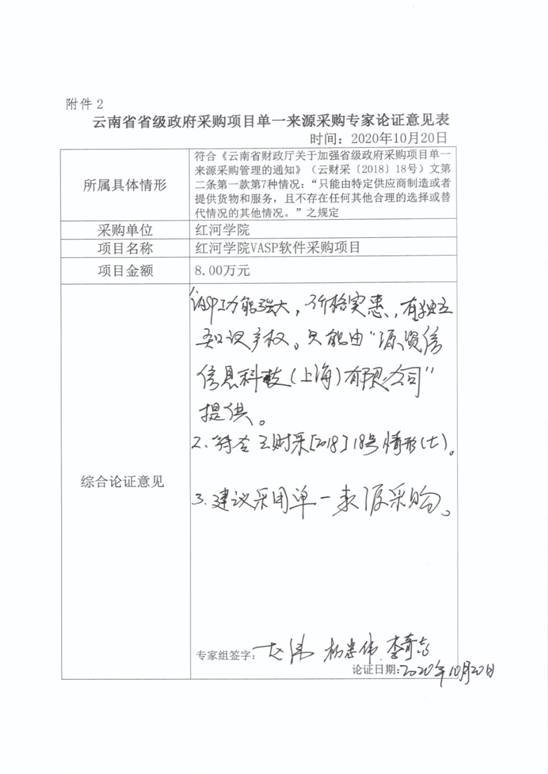 附件2
云南省省级政府采购项目单一来源采购专家论证意见表
时间：2020年10月20日
所属具体情形
符合《云南省财政厅关于加强省级政府采购项目单一
来源采购管理的通知》（云财采〔2018〕18号）文第
二条第一款第7种情况：“只能由特定供应商制造或者
提供货物和服务，且不存在任何其他合理的选择或替
代情况的其他情况。”之规定
采购单位 红河学院
项目名称 红河学院VASP软件采购项目
项目金额 8.00万元
综合论证意见
VASP功能强大，价格实惠，有独立
知识产权。只能由“源资信
信息科技(上海)有限公司”
提供。
2.符合云财采[2018]18号情形(七)。
3.建议采用单一来源采购。
专家组签字：赵伟
论证日期:2020年10月20日